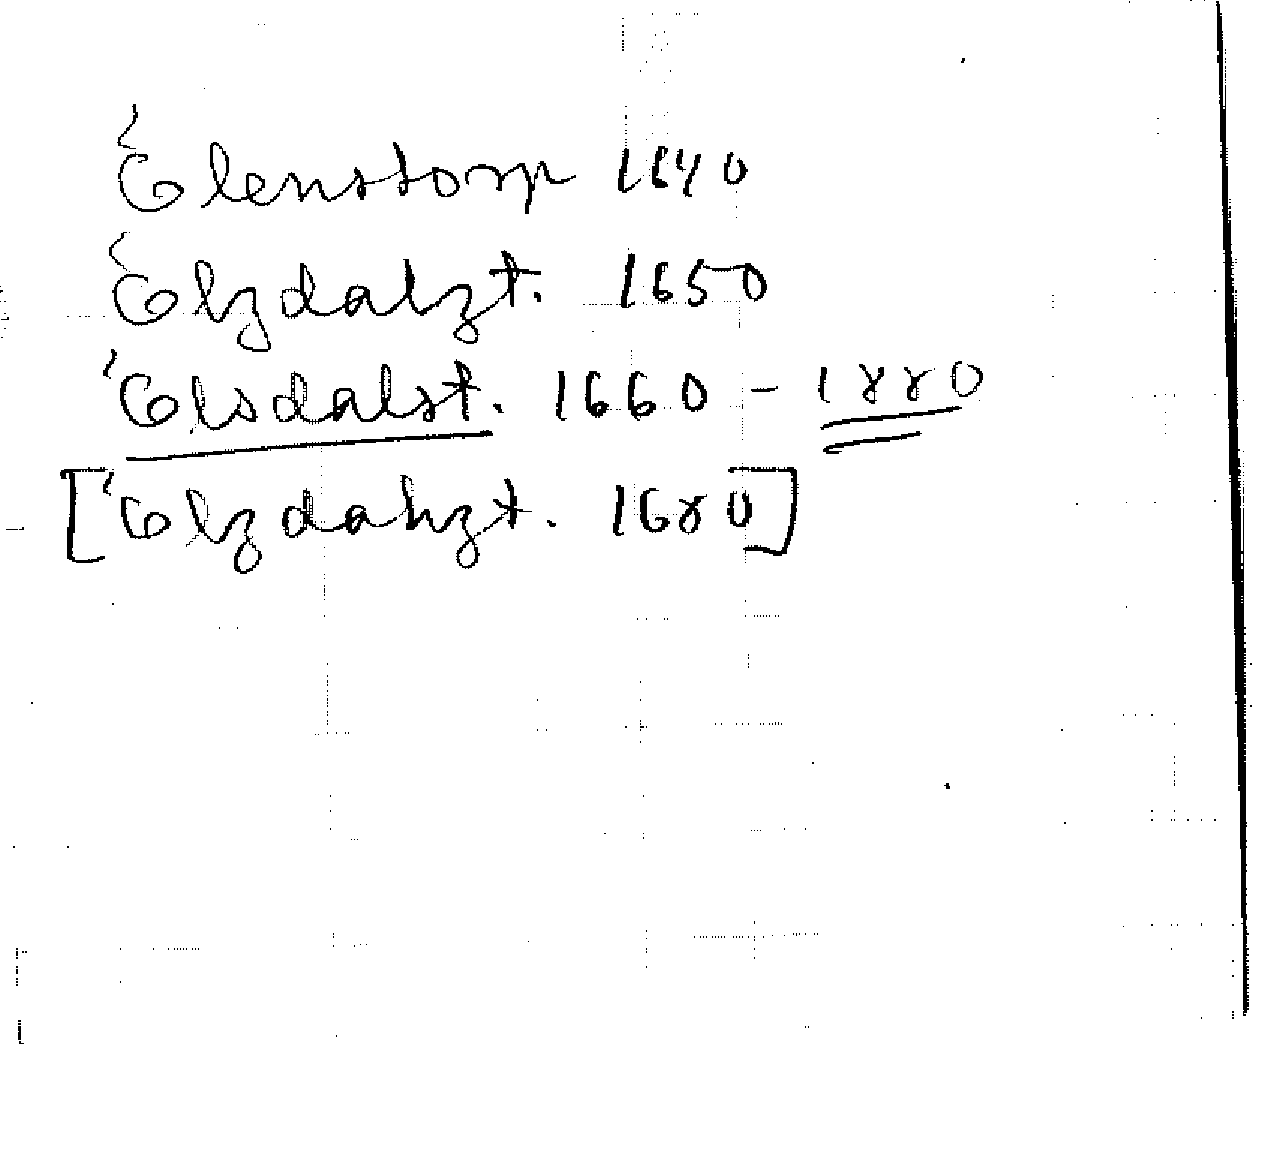 Elenstorp 1640
Elzdalzt. 1650
Elsdalst. 1660 - 1880
[Elzdahzt. 1680]